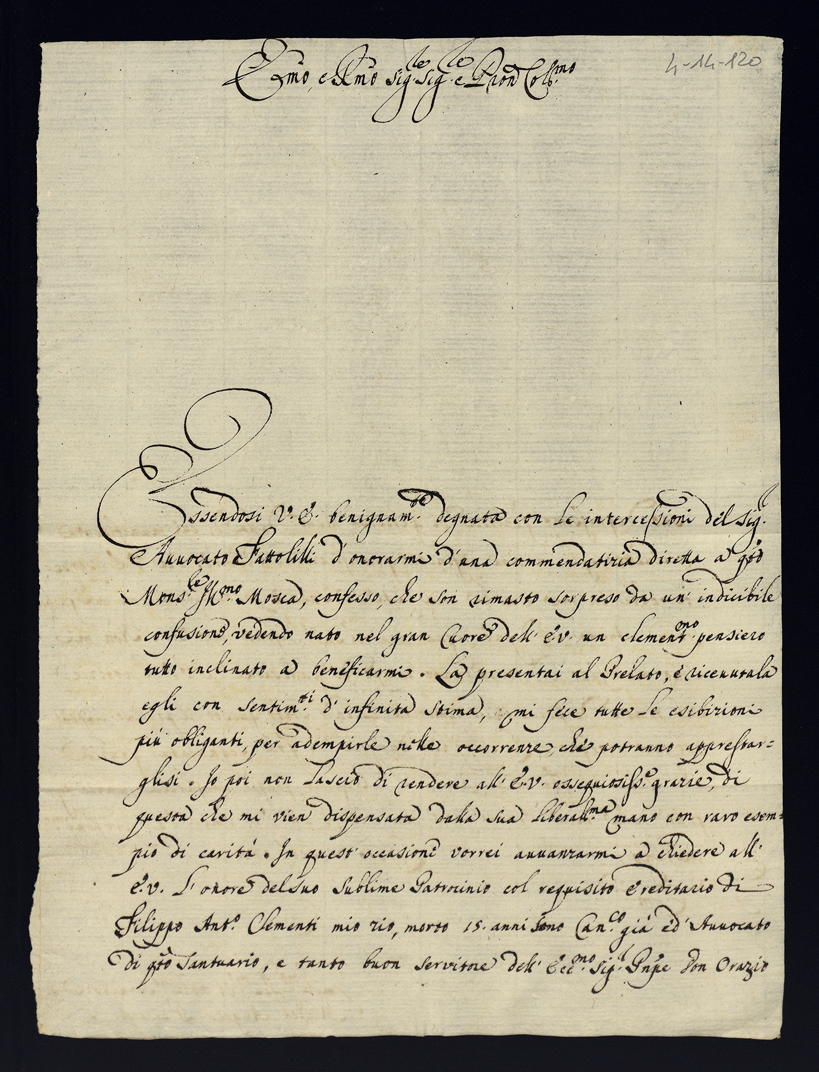 4-14-120
Emo, e Rmo Sig.re Sig.re e Pron Col.mo
Essendosi V. E. benignam.te degnata con le intercessioni del Sig.r
Avvocato Fattolilli d'onorarmi d'una commendatizia diretta a qsto
Mons.re Ill.mo Mosca, confesso, che son rimasto sorpreso da un' indicibile
confusione, vedendo nato nel gran Cuore dell' E.V. un clement.mo pensiero
tutto inclinato a beneficarmi. La presentai al Prelato, e ricevutala
egli con sentim.ti d'infinita stima, mi fece tutte le esibizioni
più obliganti, per adempirle nelle occorrenze, che potranno apprestar=
glisi. Io poi non lascio di rendere all' E.V. ossequiosiss.e grazie, di
questa che mi vien dispensata dalla sua liberal.ma mano con raro esem=
pio di carità. In quest' occasione vorrei avvanzarmi a chiedere all'
E.V. l'onore del suo sublime Patrocinio col requisito ereditario di
Filippo Ant.o Clementi mio zio, morto 15. anni sono Can.co già ed' Avvocato
di qsto Santuario, e tanto buon servitore dell' Ecc.mo Sig.r Pnpe Don Orazio